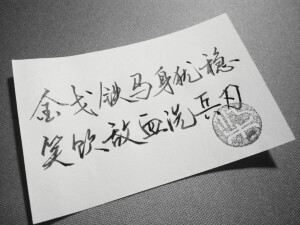 金戈铁马身犹稳
笑饮敌血洗兵刃